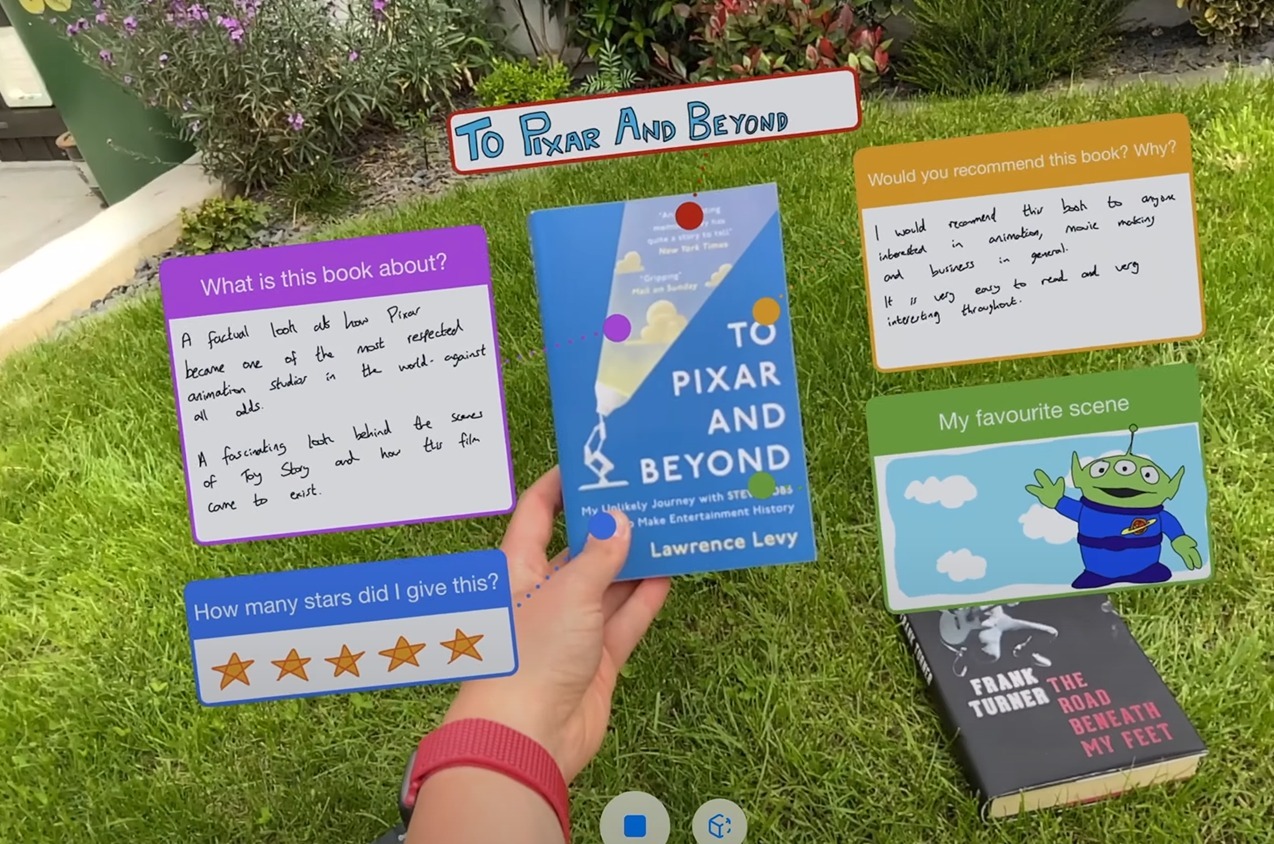 TO PIXAR AND BEYOND
What is this book about?
A factual look at how Pixar
became one of the most respected
animation studios in the world - against
all odds.
A fascinating look behind the scenes
of Toy Story and how this film
came to exist.
How many stars did I give this?
quite a story to tell"
New York Times
"Gripping"
Mail on Sunday
TO
PIXAR
AND
BEYOND
My Unlikely Journey with
Make Entertainment History
Lawrence Levy
Would you recommend this book? Why?
I would recommend this book to anyone
interested in animation, movie making
and business in general.
It is very easy to read and very
interesting throughout.
My favourite scene
FRANK
TURNER
THE
ROAD
BENEATH
MY FEET